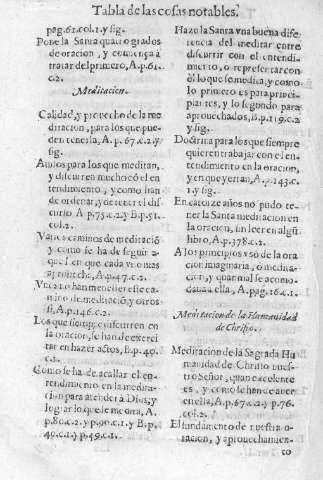 Tabla de las cosas notables.
pag.61.col.1.y sig.
Pone la Santa quatro grados
de oracion, y comiença a
tratar del primero, A.p.61.
c.2.
Meditacion.
Calidad, y prouecho de la me
ditacion, para los que pue-
den tenerla, A.p. 67.c.2.y
sig.
Auisos para los que meditan,
y discurren mucho cõ el en
tendimiento, y como han
de ordenar, y detener el dis
curso A p.75.c.2.y B.p.51.
col.2.
Varios caminos de meditaciõ
y como se ha de seguir a
que l en que cada vno mas
A.p.47.c.2.
han menester este ca
mino de meditaciõ, y otros
si, A.p.146.c.2.
Los que siempre discurren en
la oracion, se han de exerci
tar en hazer actos, B.p.49.
c.1.
Como se ha de acallar el en-
tendimiento en la medita-
cion para atender à Dios, y
lograr lo que le mostra, A.
p.80.c.2. y p.90.c.1. y B.
p.49.c.1. y p.49.c.1.
Hazo la Santa vna buena dife
rencia del meditar entre
discurrir con el entendi-
miento, o representar con
èl lo que se medita, y como
lo primero es para princi-
piantes, y lo segundo para
aprouechados, B.p.119.c.2
y sig.
Doctrina para los que siempre
quieren trabajar con el en-
tendimiento en la oracion,
y en que yerran, A.p.143.c.
1.y sig.
En catorze años no pudo te-
ner la Santa meditacion en
la oracion, sin leer en algũ
libro, A.p.378.c.2.
A los principios vsò de la ora
cion imaginaria, ò medita-
cion, y qual mal se acomo-
daua a ella, A.pag.16.c.1.
Meditacion de la Humanidad
de Christo.
Meditacion de la Sagrada Hu
manidad de Christo nues-
tro Señor, quan excelente
es, y como se han de auer
en ella, A.p.67.c.2.y p.76.
col.2.
El fundamento de nuestra o-
racion, y aprouechamien-
to